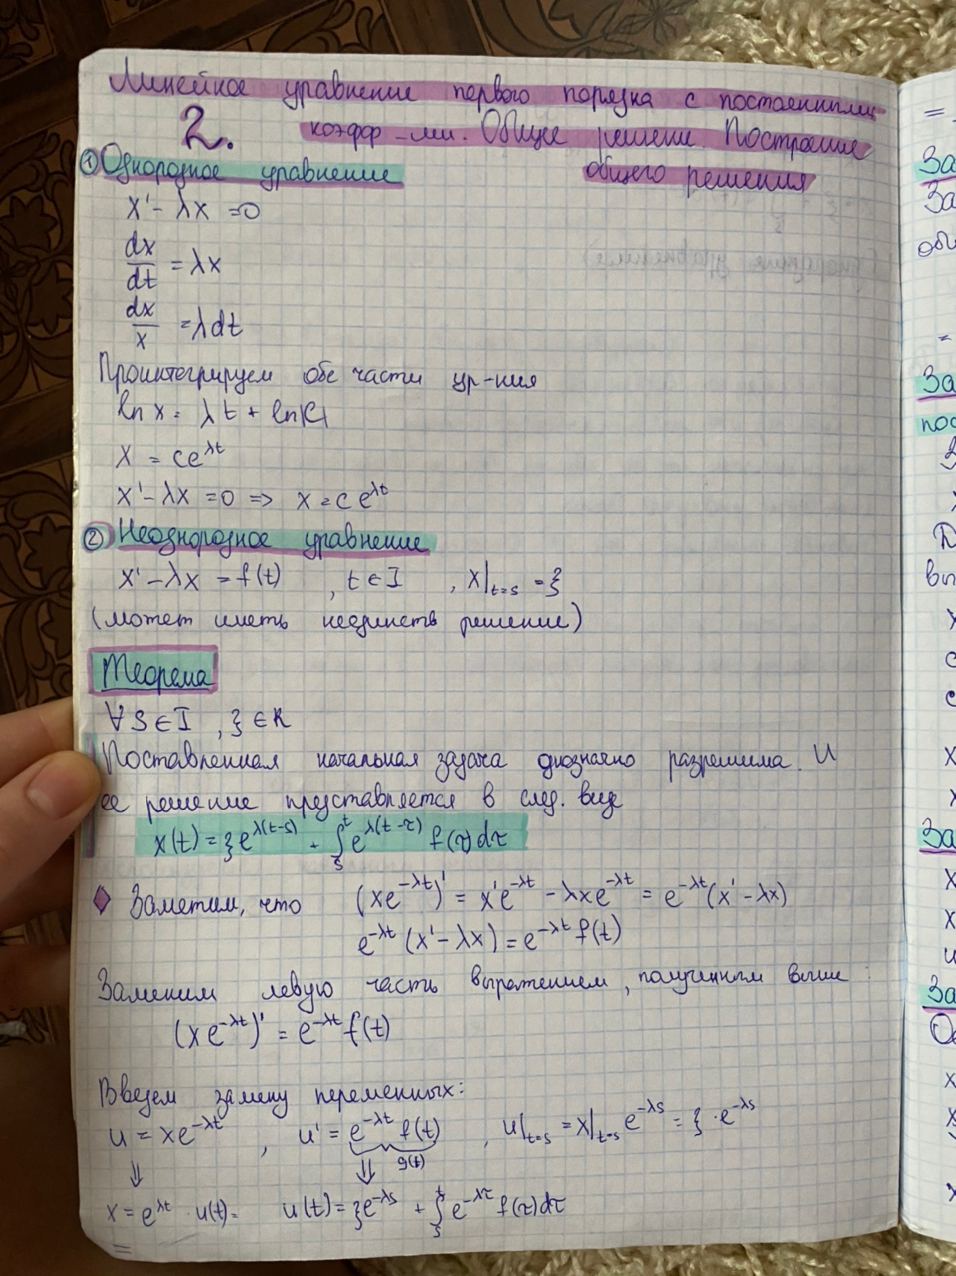 Линейное уравнение первого порядка с постоянными
2. коэфф-ми. Общее решение. Построение
общего решения
① Однородное уравнение
x' - λx = 0
dx/dt = λx
dx/x = λdt
Проинтегрируем обе части ур-ния
ln x = λt + ln|C|
x = ce^{λt}
x' - λx = 0 => x = c e^{λt}
② Неоднородное уравнение
x' - λx = f(t) , t ∈ I , x|_{t=s} = ξ
(может иметь неединств решение)
Теорема
∀ S ∈ I , ξ ∈ R
Поставленная начальная задача однозначно разрешима. И
ее решение представляется в след. виде
x(t) = ξe^{λ(t-s)} + ∫_s^t e^{λ(t-τ)} f(τ)dτ
Заметим, что (xe^{-λt})' = x'e^{-λt} - λxe^{-λt} = e^{-λt}(x' - λx)
e^{-λt}(x' - λx) = e^{-λt}f(t)
Заменим левую часть выражением, полученным выше:
(xe^{-λt})' = e^{-λt}f(t)
Введем замену переменных:
u = xe^{-λt} , u' = e^{-λt} f(t) , u|_{t=s} = x|_{t=s} e^{-λs} = ξ·e^{-λs}
g(t)
⇓ ⇓
x = e^{λt} · u(t) = u(t) = ξe^{-λs} + ∫_s^t e^{-λτ} f(τ)dτ
=
За
За
За
пос
За
За